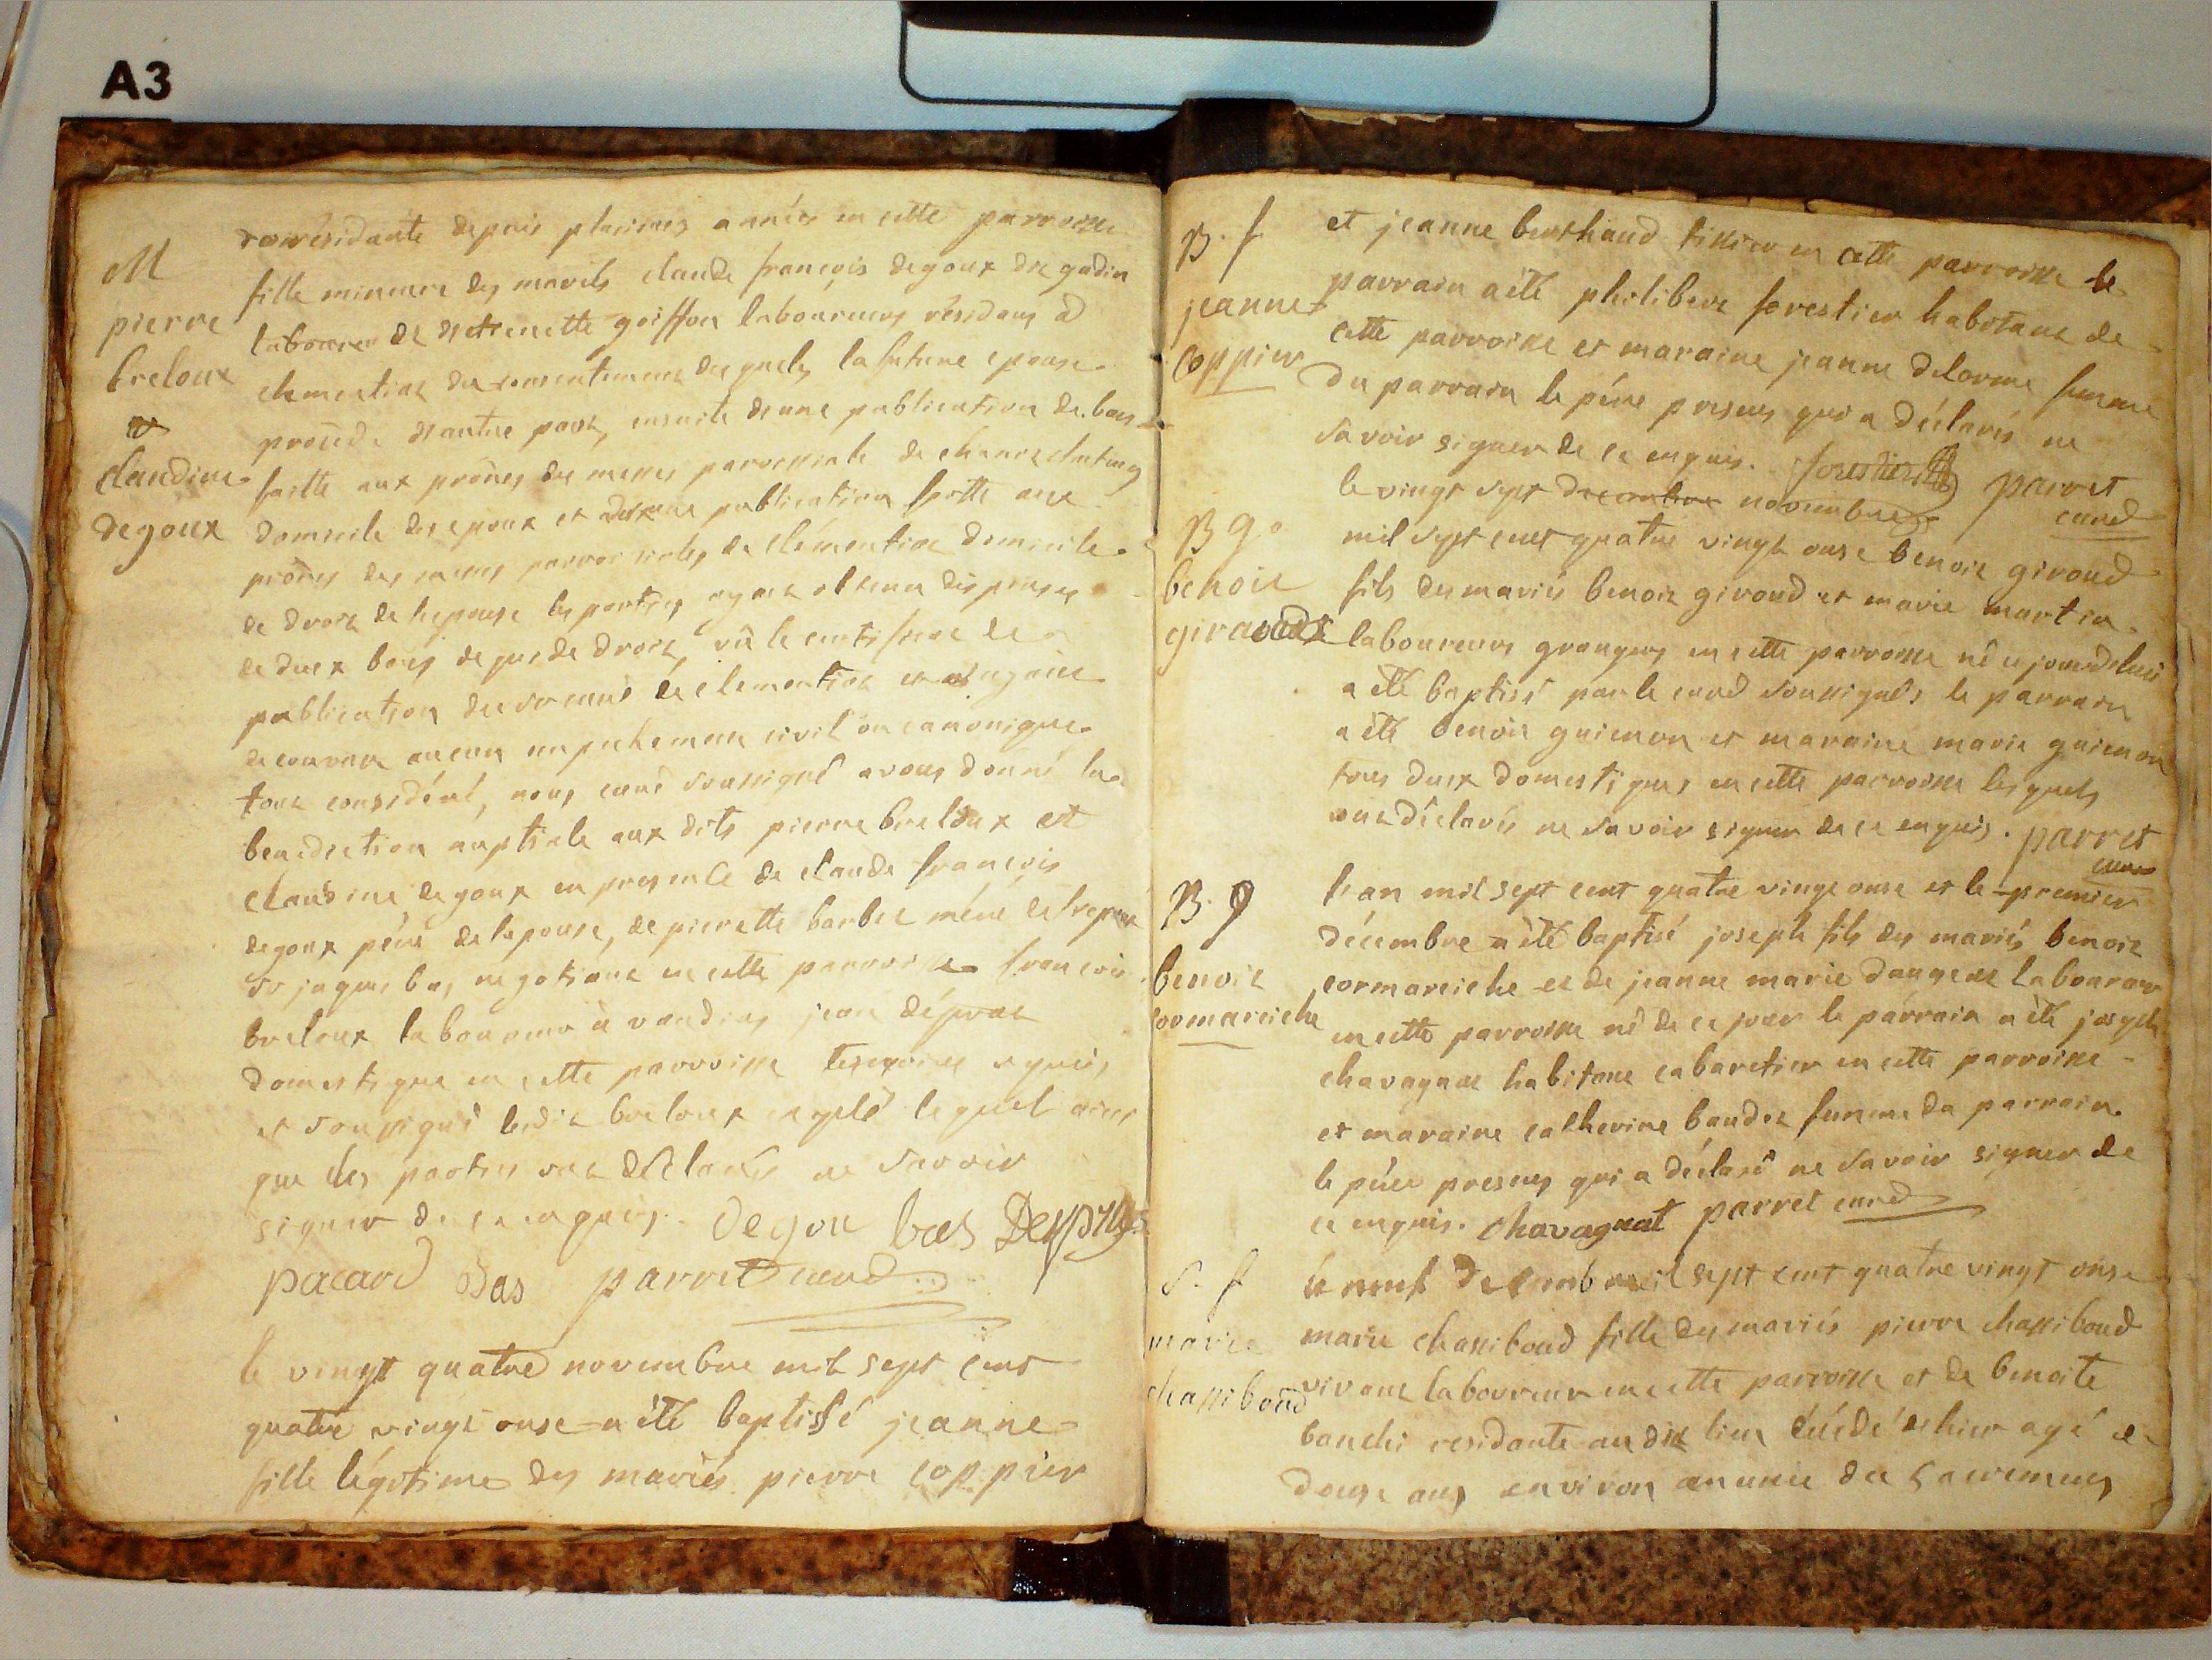 A3
M
pierre
breloux
et
claudine
degoux
résidante depuis plusieurs années en cette parroisse
fille mineure des mariés claude françois degoux dit gadin
laboureur de et pierrette goiffon laboureurs résidans a
clementiat du consentement desquels la future epouse
procede d'autre part, ensuite d'une publication de bans
faitte aux prônes des messes parroissiale de
domicile des epoux et d'une publication faitte aux
prônes des messes parroissiales de clémentiat domicile
de droit de l'epouse les parties ayant obtenu dispenses
de deux bans de qui de droit, vû le certificat de
publication du vicaire de clementiat et n'ayant
decouvert aucun empechement civil ou canonique
tout considéré, nous curé soussigné avons donné la
benediction nuptiale aux dits pierre breloux et
claudine degoux en presence de claude françois
degoux père de l'epouse, de pierrette barbet mère de l'epoux
sr jaques bas, negotiant en cette parroisse françois
breloux laboureur à vandeins jean
domestique en cette parroisse temoins requis
et soussigné ledit breloux lequel ainsi
que les parties ont déclarés ne savoir
signer de ce enquis. degou bas
pacard Bas parret curé
le vingt quatre novembre mil sept cent
quatre vingt onse a été baptisé jeanne
fille légitime des mariés pierre coppier
B. f
jeanne
coppier
et jeanne berthaud tissier en cette parroisse le
parrain a été philibert forestier habitant de
cette parroisse et maraine jeanne delorme femme
du parrain le père present qui a déclarés ne
savoir signer de ce enquis. forestier parret
curé
B g
benoit
giraud
le vingt sept decembre novembre
mil sept cent quatre vingt onse benoit giroud
fils des mariés benoit giroud et marie martin
laboureurs grangers en cette parroisse né ce jourd'hui
a été baptisé par le curé soussignés le parrain
a été benoit guimon et maraine marie guimon
tous deux domestiques en cette parroisse lesquels
ont déclarés ne savoir signer de ce enquis. parret
curé
B. g
benoit
cormareiche
l'an mil sept cent quatre vingt onse et le premier
décembre a été baptisé joseph fils des mariés benoit
cormareiche et de jeanne marie laboureur
en cette parroisse né de ce jour le parrain a été joseph
chavagnat habitant cabaretier en cette parroisse
et maraine catherine baudet femme du parrain
le père present qui a déclaré ne savoir signer de
ce enquis. chavagnat parret curé
S. f
marie
chassiboud
le neuf decembre mil sept cent quatre vingt onse
marie chassiboud fille des mariés pierre chassiboud
vivant laboureur en cette parroisse et de benoite
banchi residante au dit lieu décédé de hier agé de
douse ans environ munie des sacremens